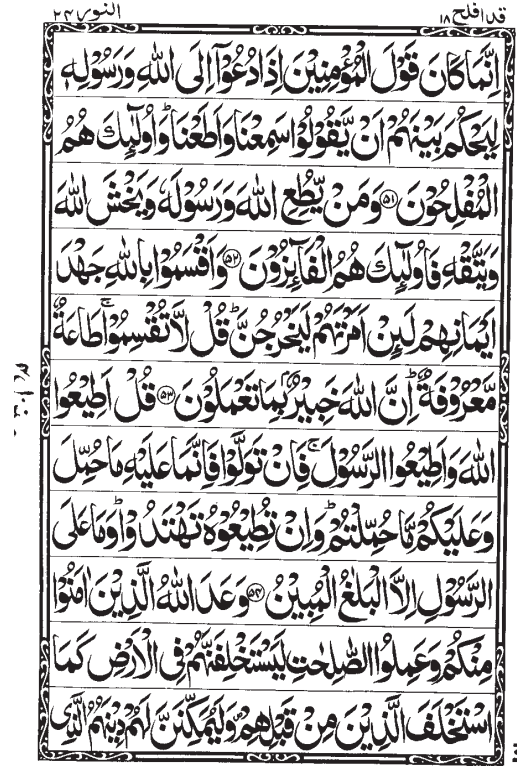 قد افلح ١٨ النور ٢٤
اِنَّمَا كَانَ قَوْلَ الْمُؤْمِنِيْنَ اِذَا دُعُوْۤا اِلَى اللّٰهِ وَرَسُوْلِهٖ
لِيَحْكُمَ بَيْنَهُمْ اَنْ يَّقُوْلُوْا سَمِعْنَا وَاَطَعْنَا ؕ وَاُولٰٓئِكَ هُمُ
الْمُفْلِحُوْنَ ﴿۵۱﴾ وَمَنْ يُّطِعِ اللّٰهَ وَرَسُوْلَهٗ وَيَخْشَ اللّٰهَ
وَيَتَّقْهِ فَاُولٰٓئِكَ هُمُ الْفَآئِزُوْنَ ﴿۵۲﴾ وَاَقْسَمُوْا بِاللّٰهِ جَهْدَ
اَيْمَانِهِمْ لَئِنْ اَمَرْتَهُمْ لَيَخْرُجُنَّ ؕ قُلْ لَّا تُقْسِمُوْا ۚ طَاعَةٌ
مَّعْرُوْفَةٌ ؕ اِنَّ اللّٰهَ خَبِيْرٌۢ بِمَا تَعْمَلُوْنَ ﴿۵۳﴾ قُلْ اَطِيْعُوا
اللّٰهَ وَاَطِيْعُوا الرَّسُوْلَ ۚ فَاِنْ تَوَلَّوْا فَاِنَّمَا عَلَيْهِ مَا حُمِّلَ
وَعَلَيْكُمْ مَّا حُمِّلْتُمْ ؕ وَاِنْ تُطِيْعُوْهُ تَهْتَدُوْا ؕ وَمَا عَلَى
الرَّسُوْلِ اِلَّا الْبَلٰغُ الْمُبِيْنُ ﴿۵۴﴾ وَعَدَ اللّٰهُ الَّذِيْنَ اٰمَنُوْا
مِنْكُمْ وَعَمِلُوا الصّٰلِحٰتِ لَيَسْتَخْلِفَنَّهُمْ فِى الْاَرْضِ كَمَا
اسْتَخْلَفَ الَّذِيْنَ مِنْ قَبْلِهِمْ ۪ وَلَيُمَكِّنَنَّ لَهُمْ دِيْنَهُمُ الَّذِى